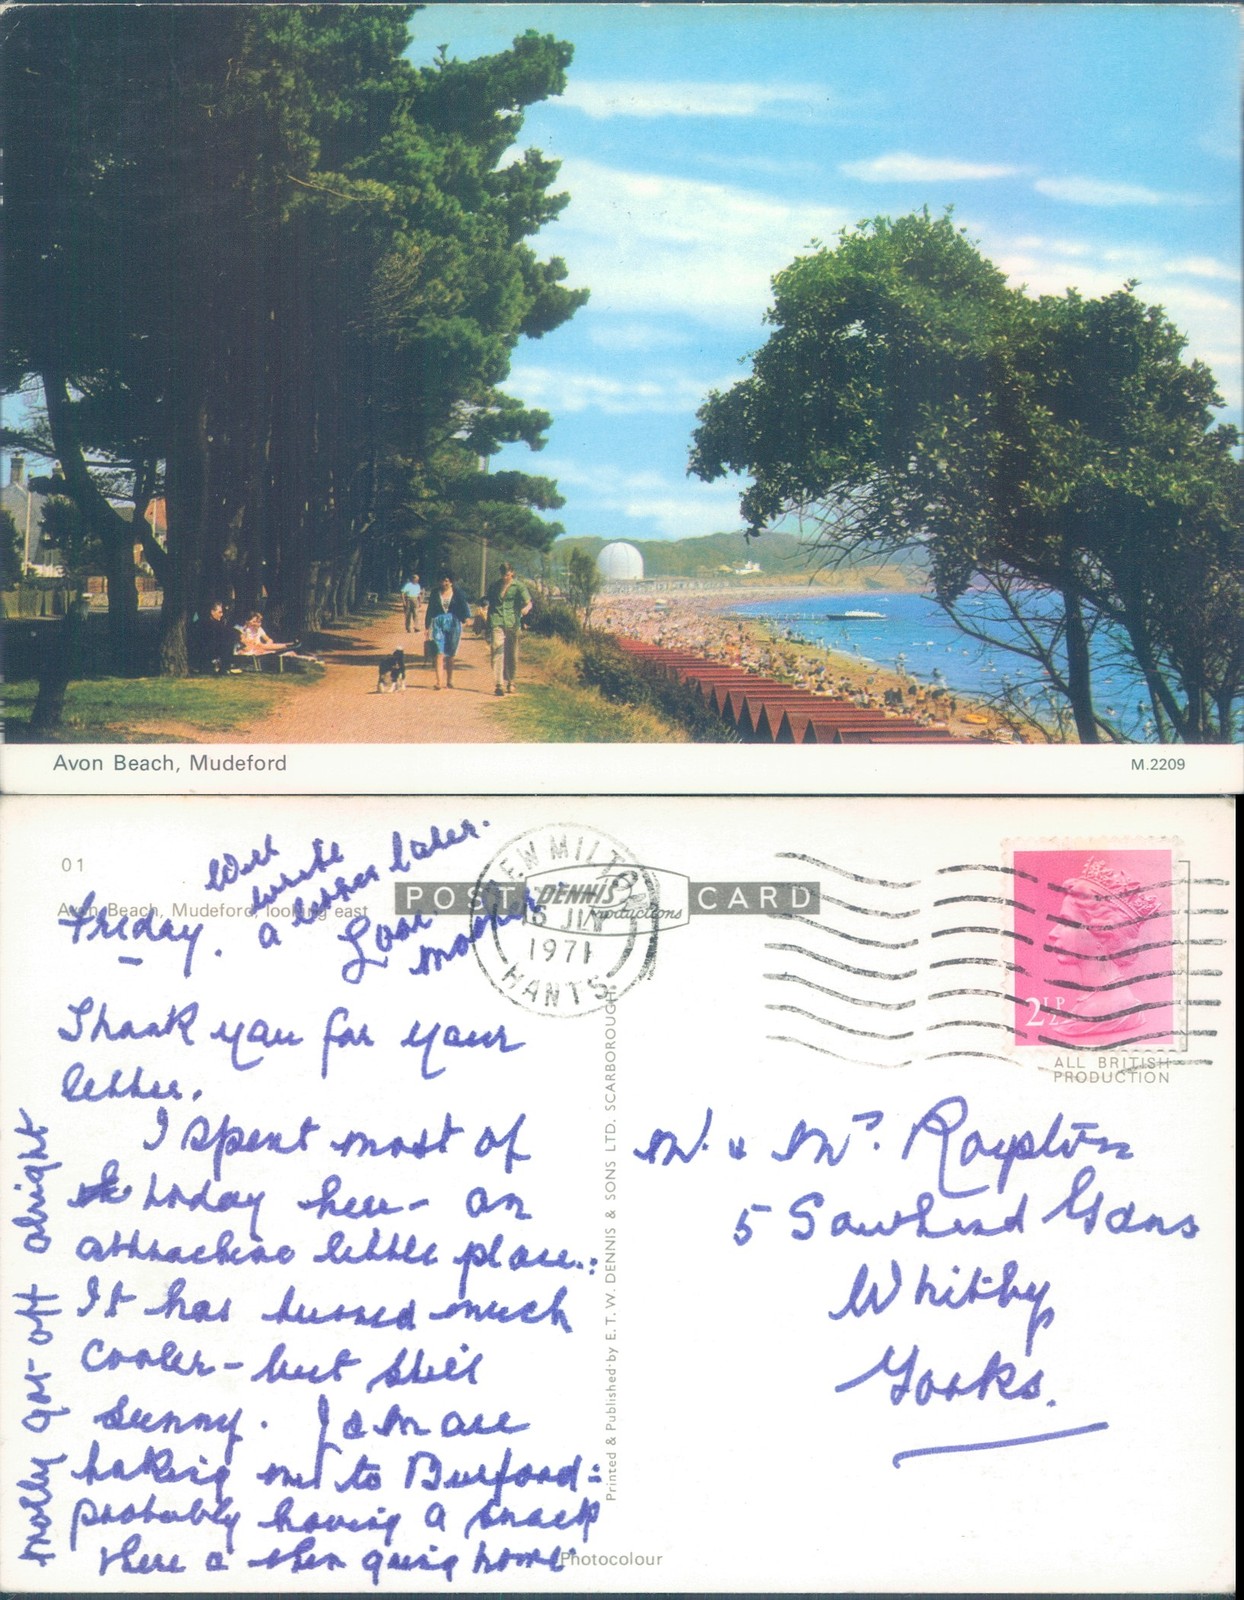 Avon Beach, Mudeford
M.2209
01
Avon Beach, Mudeford, looking east
POST CARD
DENNIS
Productions
NEW MILTON
1971
HANTS
2½P
ALL BRITISH
PRODUCTION
Will
write
a letter later.
Love
Mother
Friday.
Thank you for your
letter.
I spent most of
today here - an
attractive little place.
It has turned much
cooler - but still
sunny. J & M are
taking me to Burford =
probably having a snack
there & then going home
Molly got off alright
Printed & Published by E. T. W. DENNIS & SONS LTD. SCARBOROUGH
Mr. & Mrs. Royston
5 Gdns
Whitby
Yorks.
Photocolour